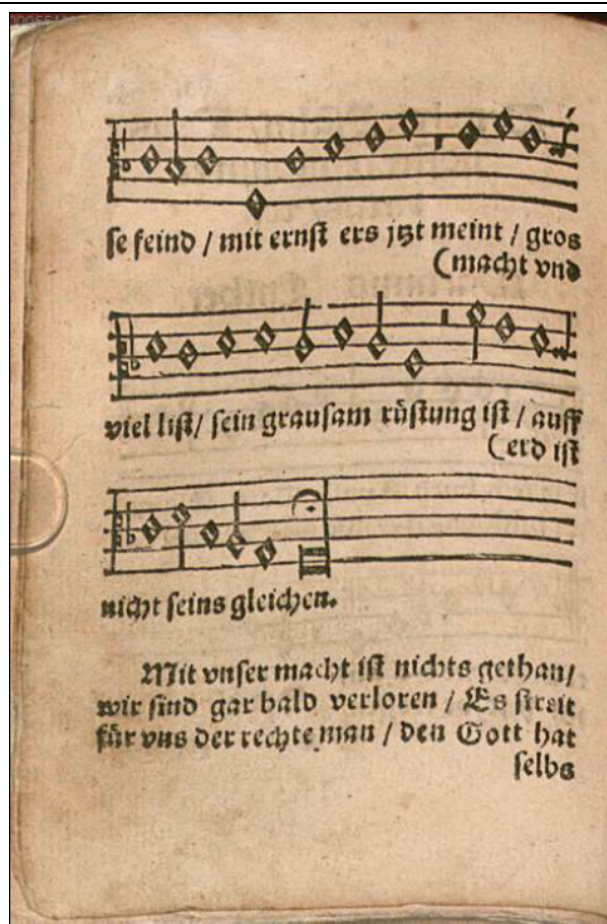 se feind / mit ernst ers jtzt meint / gros
(macht vnd
viel list / sein grausam rüstung ist / auff
(erd ist
nicht seins gleichen.
Mit vnser macht ist nichts gethan /
wir sind gar bald verloren / Es streit
für vns der rechte man / den Gott hat
selbs